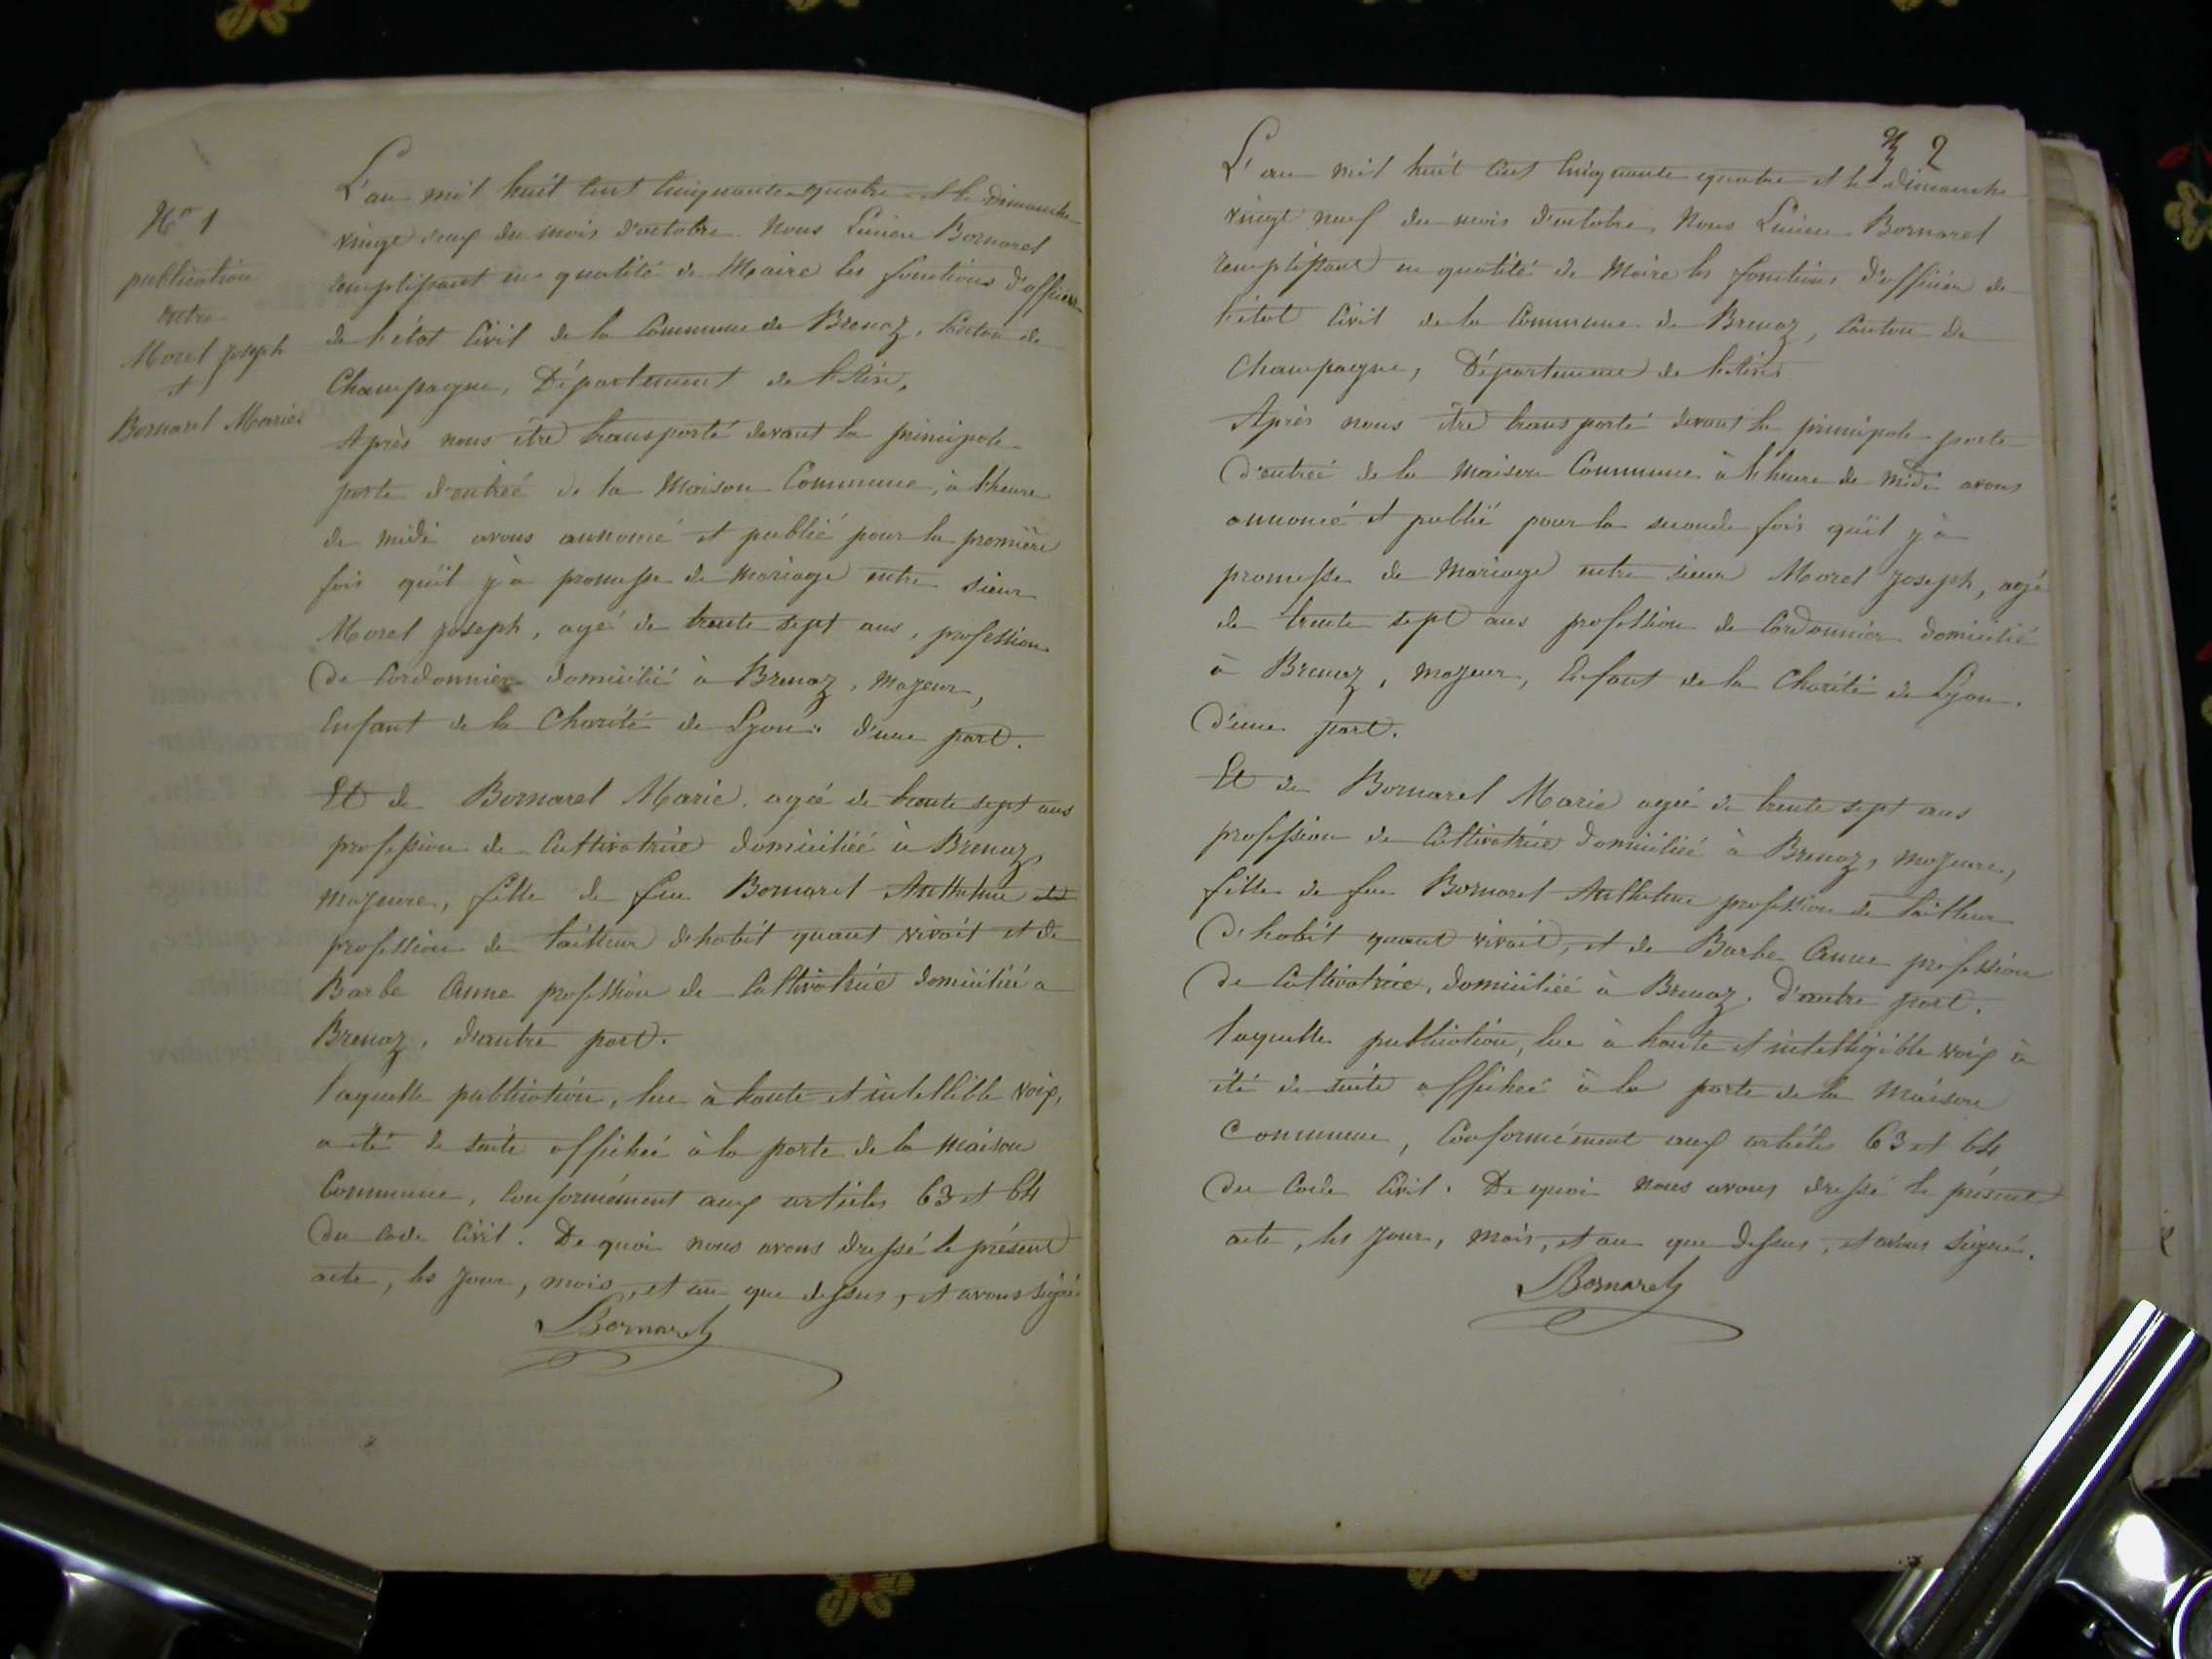 N° 1
publication
entre
Morel Joseph
et
Bornarel Marie.
L'an mil huit cent cinquante quatre et le Dimanche
vingt deux du mois d'octobre. Nous Lucien Bornarel
remplissant en qualité de Maire les fonctions d'officier
de l'état Civil de la Commune de Brenaz, Canton de
Champagne, Département de l'Ain,
Après nous être transporté devant la principale
porte d'entreé de la Maison Commune, à l'heure
de midi avons annoncé et publié pour la première
fois quïl y à promesse de Mariage entre sieur
Morel Joseph, agé de trente sept ans, profession
De Cordonnier domicilié à Brenaz, Majeur,
Enfant de la Charité de Lyon. d'une part.
Et de Bornarel Marie, ageé de trente sept ans
profession de Cultivatrice domiciliée à Brenaz,
majeure, fille de feu Bornarel Anthelme
profession de tailleur d'habit quant vivait et de
Barbe Anne profession de Cultivatrice domiciliée a
Brenaz, d'autre part.
laquelle publication, lue à haute et intellible voix,
a été de suite affichée à la porte de la Maison
Commune, Conformément aux articles 63 et 64
Du Code Civil. De quoi nous avons dressé le présent
acte, les Jour, mois, et an que dessus, et avons signé
LBornarel
2
L'an mil huit cent cinquante quatre et le dimanche
vingt neuf du mois d'octobre, Nous Lucien Bornarel
remplissant en qualité de Maire les fonctions d'officier de
l'état Civil de la Commune de Brenaz, Canton de
Champagne, Département de l'Ain.
Après nous être transporté devant la principale porte
D'entreé de la Maison Commune à l'heure de midi avons
annoncé et publié pour la seconde fois quïl y à
promesse de Mariage entre sieur Morel Joseph, agé
de trente sept ans profession de Cordonnier domicilié
à Brenaz, majeur, Enfant de la Charité de Lyon.
D'une part.
Et de Bornarel Marie ageé de trente sept ans
profession de Cultivatrice domiciliée à Brenaz, majeure,
fille de feu Bornarel Anthelme profession de tailleur
D'habit quant vivait, et de Barbe Anne profession
De Cultivatrice, domiciliée à Brenaz, D'autre part.
laquelle publication, lue à haute et intelligible voix à
été de suite affichée à la porte de la Maison
Commune, Conformément aux articles 63 et 64
Du Code Civil. De quoi nous avons dressé le présent
acte, les Jour, mois, et an que dessus, et avons signé.
LBornarel